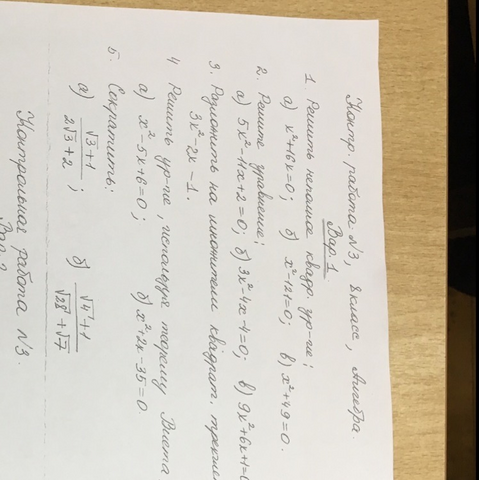 Контр. работа №3, 8 класс, Алгебра
Вар. 1
1. Решить неполное квадр. ур-ие:
а) x²+16x=0; б) x²-121=0; в) x²+49=0.
2. Решите уравнение:
а) 5x²-11x+2=0; б) 3x²-4x-4=0; в) 9x²+6x+1=0
3. Разложить на множители квадрат. трехчлен
3x²-2x-1.
4 Решить ур-ие, используя теорему Виета
а) x²-5x+6=0; б) x²+2x-35=0
5. Сократить:
а) (√3+1)/(2√3+2); б) (√4+1)/(√28+√7)
Контрольная работа №3.
Вар. 2